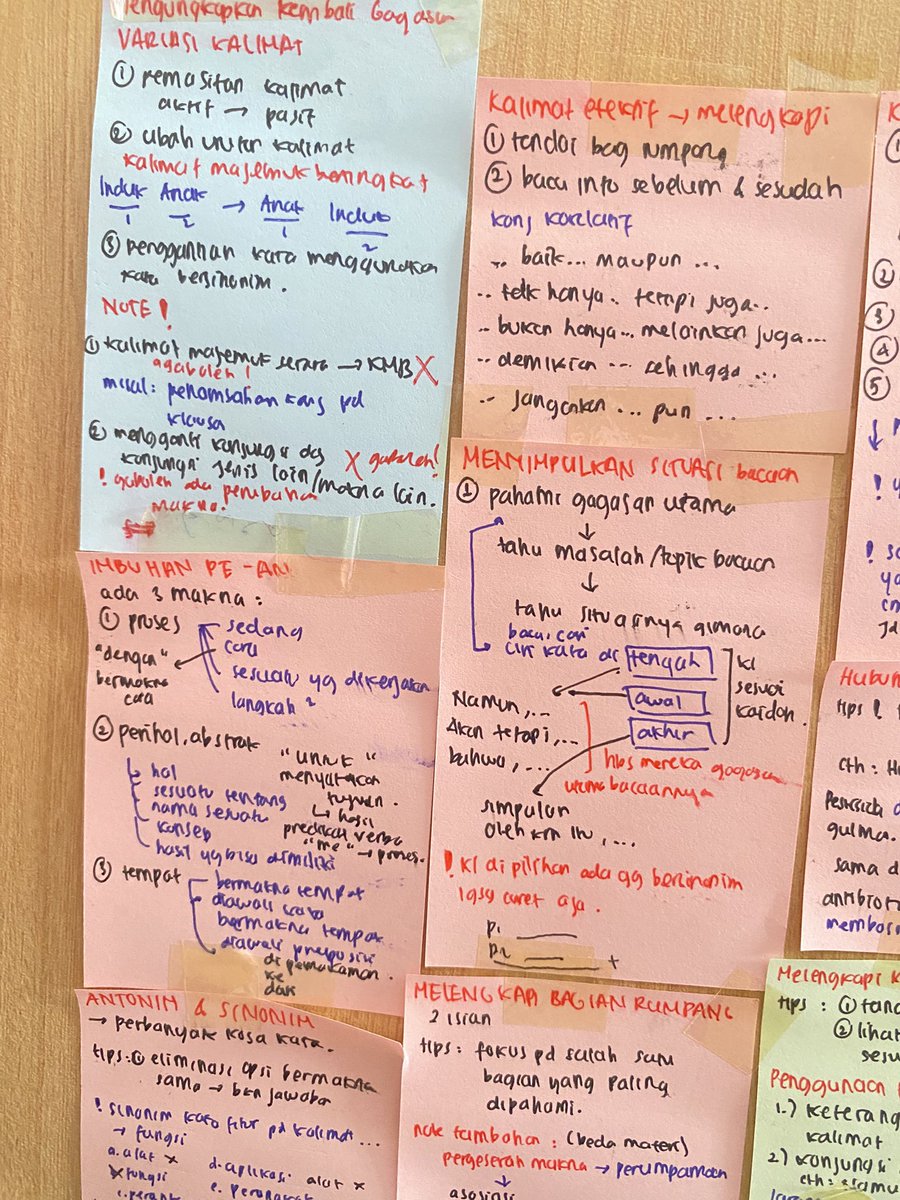 Mengungkapkan kembali Gagasan
VARIASI KALIMAT
① pemasifan kalimat
aktif → pasif
② ubah unsur kalimat
kalimat majemuk bertingkat
Induk Anak → Anak Induk
1 2 1 2
③ penggunaan kata menggunakan
kata bersinonim.
NOTE !
① kalimat majemuk setara → KMB X
misal: penambahan kang pd
klausa
② mengganti konjungsi dg
konjungsi jenis lain/makna lain.
X gaboleh!
! gaboleh ada perubahan
makna.
Kalimat efektif → melengkapi
① tandai bag rumpang
② baca info sebelum & sesudah
konj korelatif
.. baik... maupun ...
.. tdk hanya.. tetapi juga..
.. bukan hanya... melainkan juga...
.. demikian ... sehingga ...
.. jangankan ... pun ...
MENYIMPULKAN SITUASI bacaan
① pahami gagasan utama
↓
tahu masalah/topik bacaan
↓
tahu situasinya gimana
baca cari
ciri kata di tengah
awal
akhir
kl
sesuai
kaidah.
Namun, ...
Akan tetapi, ...
bahwa, ...
hbs mereka gagasan
utama bacaannya
simpulan
oleh krn itu, ...
! kl di pilihan ada yg bersinonim
lgsg coret aja.
P1
P2
+
IMBUHAN PE-AN
ada 3 makna :
① proses
sedang
cara
sesuatu yg dikerjakan
langkah 2
"dengan"
bermakna
cara
② perihal, abstrak
hal
sesuatu tentang
nama sesuatu
konsep
hasil yg bisa dimiliki
"untuk"
menyatakan
tujuan.
↳ hasil
predikat verba
"me" → proses.
③ tempat
bermakna tempat
diawali kata
bermakna tempat
diawali preposisi
di pemakaman.
ke
dari
ANTONIM & SINONIM
→ perbanyak kosa kata.
tips: ① eliminasi opsi bermakna
sama → bkn jawaban
! sinonim kata fitur pd kalimat ...
→ fungsi
a. alat X
d. aplikasi alat X
X fungsi
e. perangkat
MELENGKAPI BAGIAN RUMPANG
2 isian
tips : fokus pd salah satu
bagian yang paling
dipahami.
note tambahan : (beda materi)
pergeseran makna → perumpamaan
↓
asosiasi
②
③
④
⑤
Hubun
tips !
cth : H
gulma.
sama d
Melengkapi k
tips : ① tand
② lihat
sesu
Penggunaan
1.) keterang
kalimat
2) konjungsi
cth :